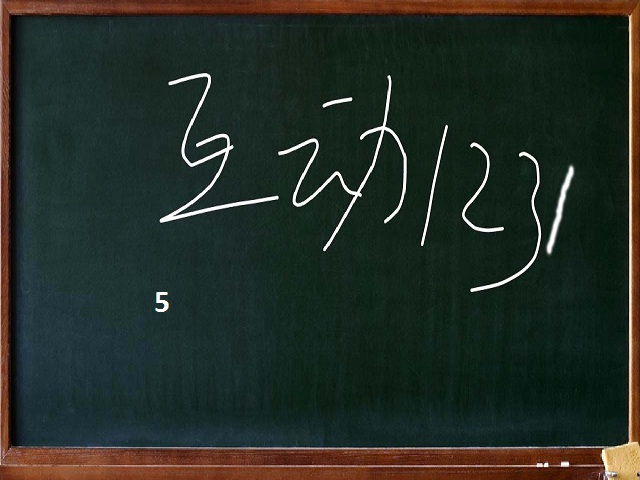 互动1231
5